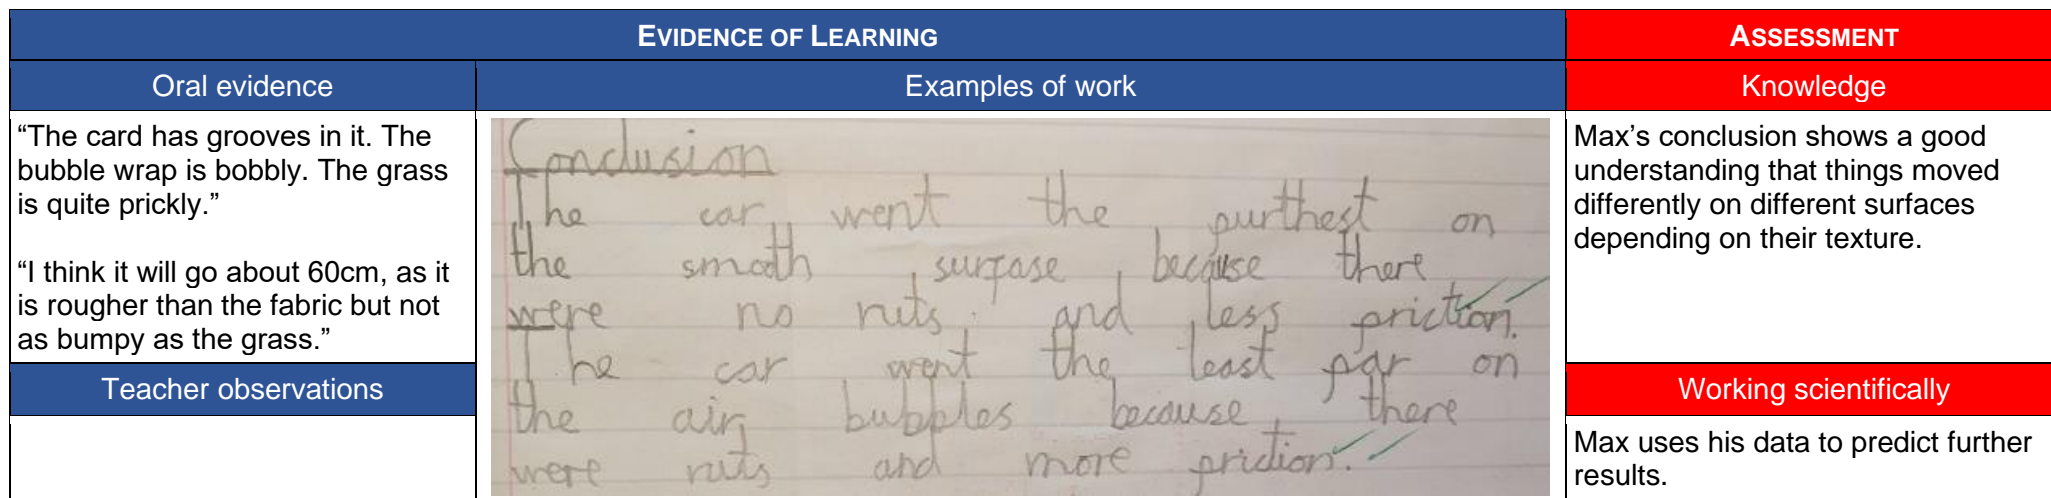 EVIDENCE OF LEARNING
Oral evidence
“The card has grooves in it. The
bubble wrap is bobbly. The grass
is quite prickly.”
“I think it will go about 60cm, as it
is rougher than the fabric but not
as bumpy as the grass.”
Teacher observations
Examples of work
Conclusion
The car went the purthest on
the smooth surfase because there
were no ruts and less priction.
The car went the least par on
the air bubbles because there
were ruts and more priction.
ASSESSMENT
Knowledge
Max’s conclusion shows a good
understanding that things moved
differently on different surfaces
depending on their texture.
Working scientifically
Max uses his data to predict further
results.